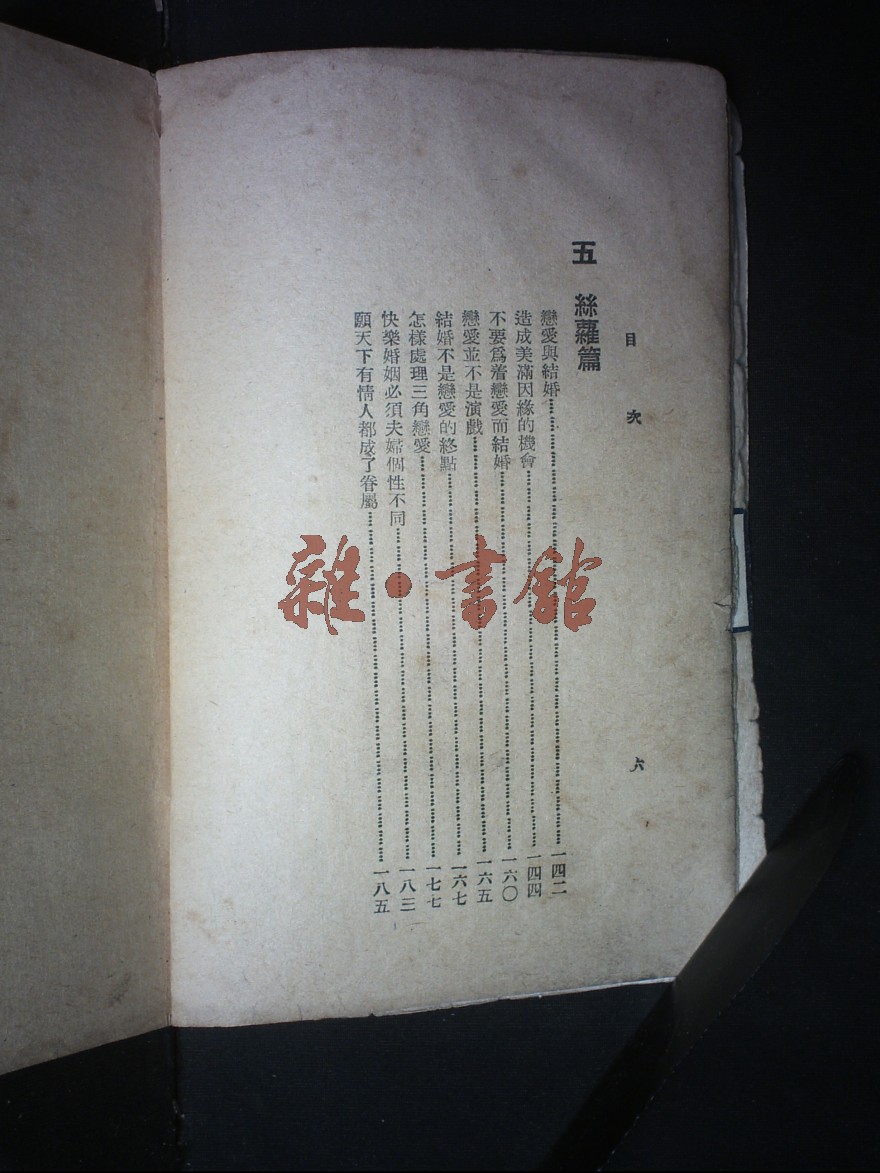 目次
六
五 絲蘿篇
戀愛與結婚……一四二
造成美滿因緣的機會……一四四
不要爲着戀愛而結婚……一六〇
戀愛並不是演戲……一六五
結婚不是戀愛的終點……一六七
怎樣處理三角戀愛……一七七
快樂婚姻必須夫婦個性不同……一八三
願天下有情人都成了眷屬……一八五
雜·書館